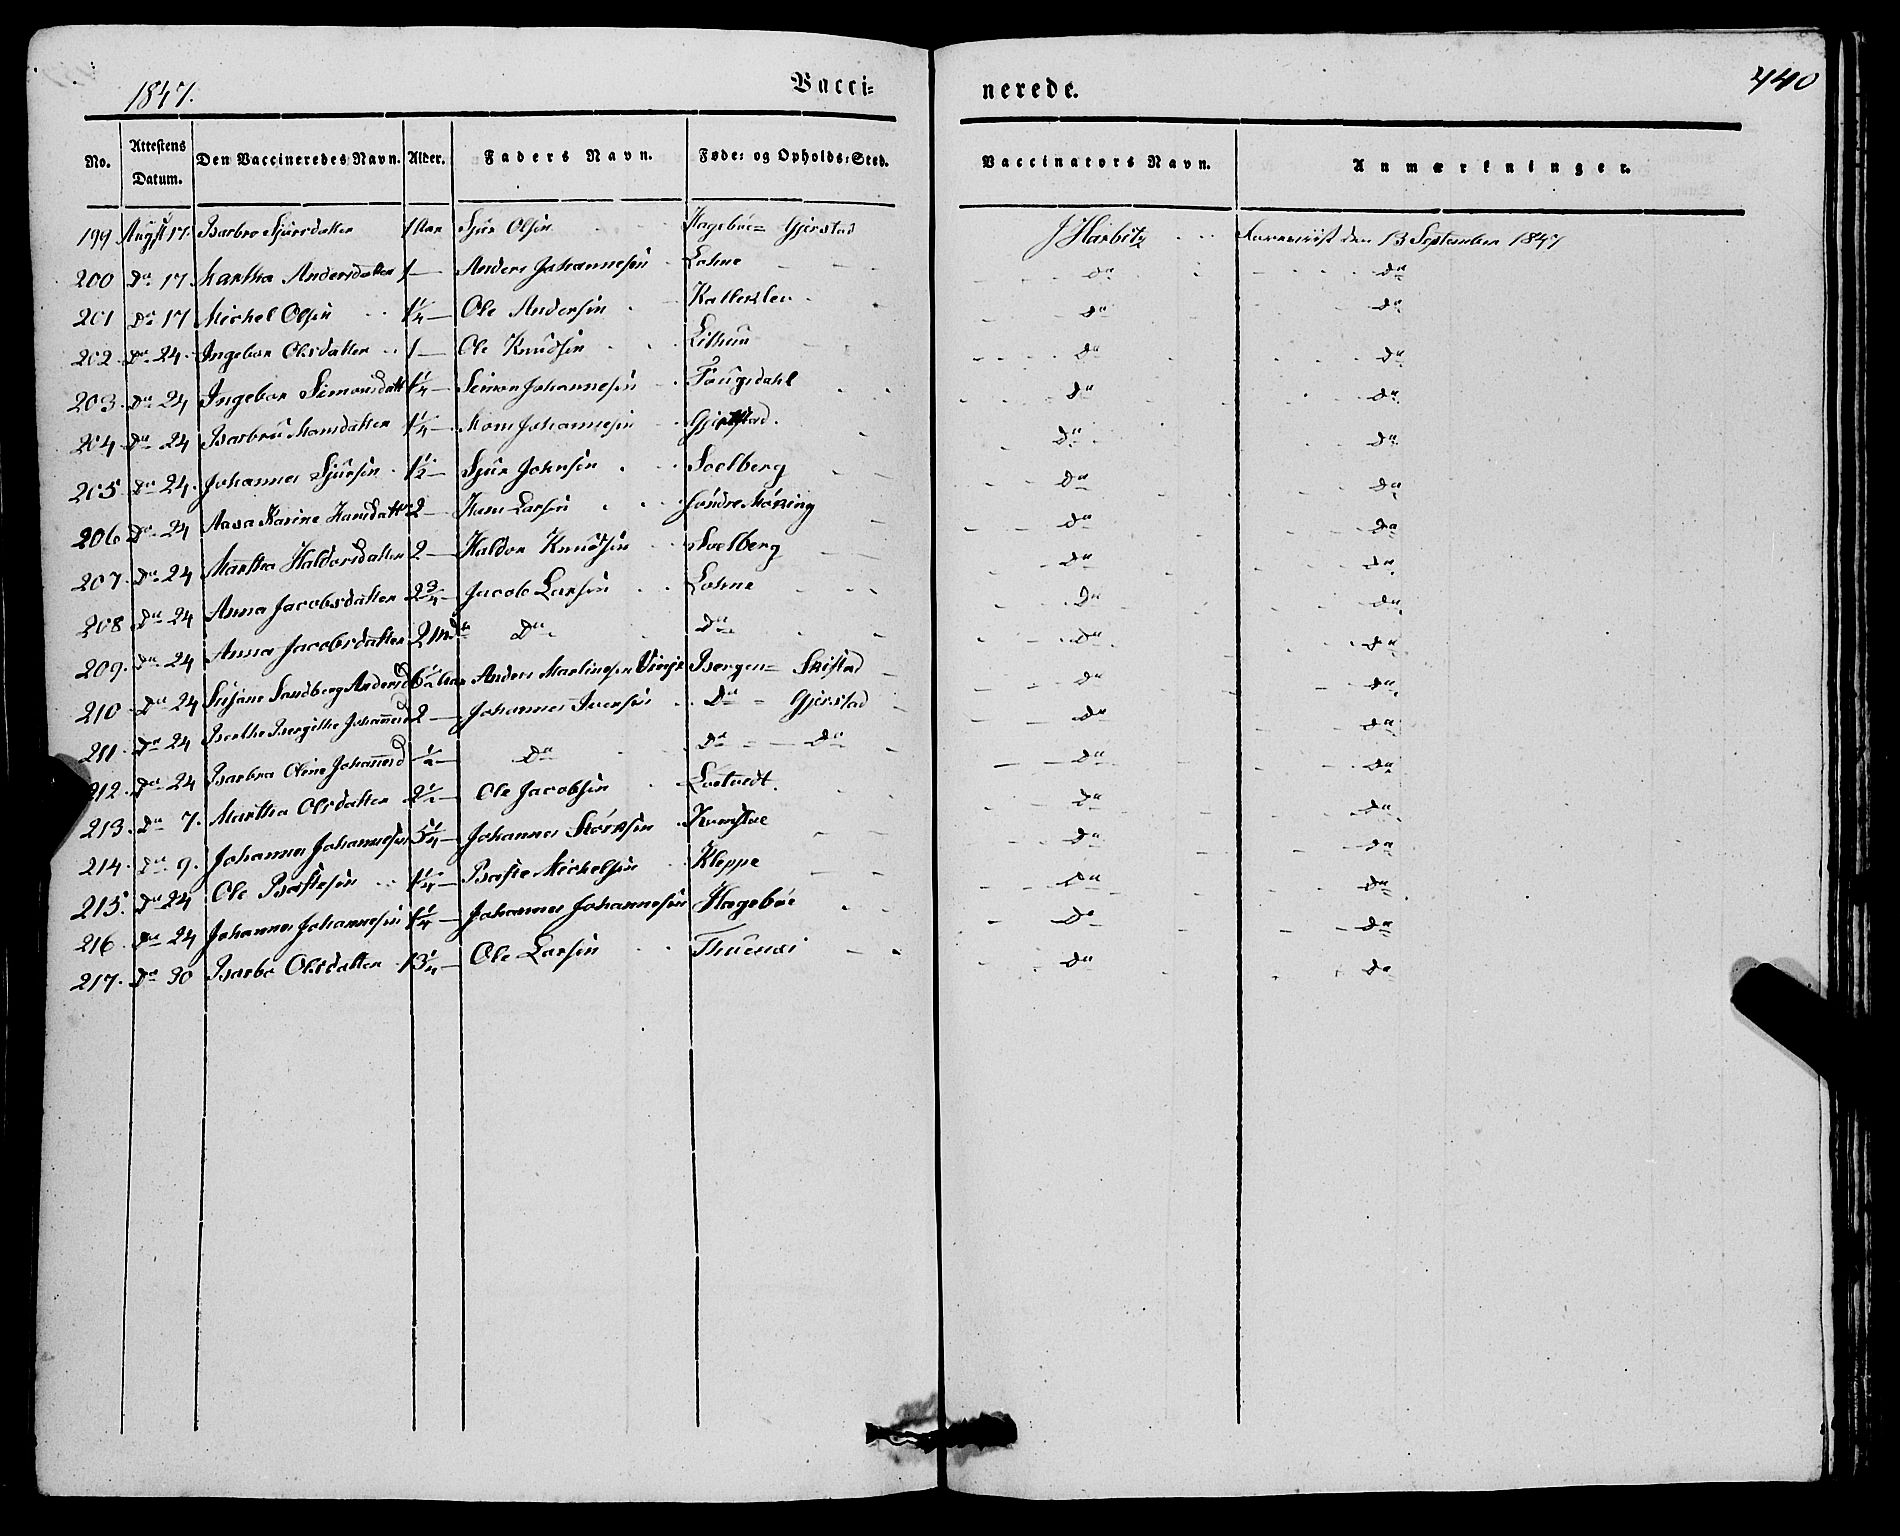 1847. Vacci= nerede. 440
No. Attestens Datum. Den Vaccineredes Navn. Alder. Faders Navn. Føde= og Opholds=Sted. Vaccinators Navn. Anmærkninger.
199 Augst 17. Barbro Sjursdatter 1 Aar Sjur Olsen Hagebøe= Gjerstad J Harbitz den 13 September 1847
200 Do 17 Martha Andersdatter 1 — Anders Johannesen Lohne do do
201 Do 17 Michel Olsen 1¼ — Ole Andersen do do
202 Do 24. Ingebor Olsdatter 1 — Ole Knudsen do do
203. Do 24 Ingebor Simonsdatt 1¼ — Simon Johannesen Tougsdahl do do
204 Do 24 Barbru Monsdatter 1¼ — Mons Johannesen Gjerstad. do do
205 Do 24. Johannes Sjursen 1½ — Sjur Johnsen Soelberg do do
206 Do 24 Aasa Karine Hansdatter 2 — Hans Larsen Søndre Høising do do
207. Do 24 Martha Haldorsdatter 2 — Haldor Knudsen Soelberg do do
208 Do 24 Anna Jacobsdatter 2¾ — Jacob Larsen Lohne do do
209. Do 24 Anna Jacobsdatter 2 Do Do do do
210 Do 24 Susane Sandberg Andersd 6½ Aar Anders Martinesen Vinje Bergen= Skistad do do
211. Do 24 Berthe Bergithe Johannesd 2 — Johannes Iversen Do = Gjerstad do do
212. Do 24 Barbra Oline Johannesd ½ — Do Do = — Do do do
213. Do 7. Martha Olsdatter 2½ — Ole Jacobsen Loetvedt. do do
214. Do 9. Johannes Johannesen 5¼ — Johannes Størksen do do
215. Do 24 Ole Bastesen 1¼ — Baste Michelsen Kleppe do do
216 Do 24 Johannes Johannesen 1¼ — Johannes Johannesen Hagebøe do do
217. Do 30 Barbo Olsdatter 13¼ — Ole Larsen Thuenæs do do